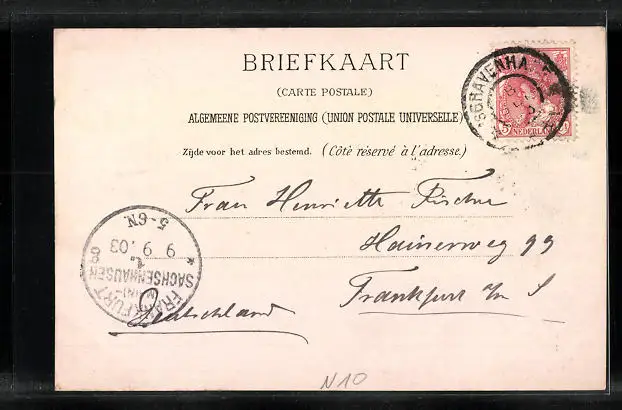 BRIEFKAART
(CARTE POSTALE)
ALGEMEENE POSTVEREENIGING (UNION POSTALE UNIVERSELLE)
Zijde voor het adres bestemd. (Côté réservé à l'adresse.)
'SGRAVENHA
5 NEDERL
Frau Henriette Fischer
Hainerweg 99
Frankfurt a/M S
Deutschland
FRANKFURT
(MAIN)-
SACHSENHAUSEN
9 9 .03
5-6N.
N10